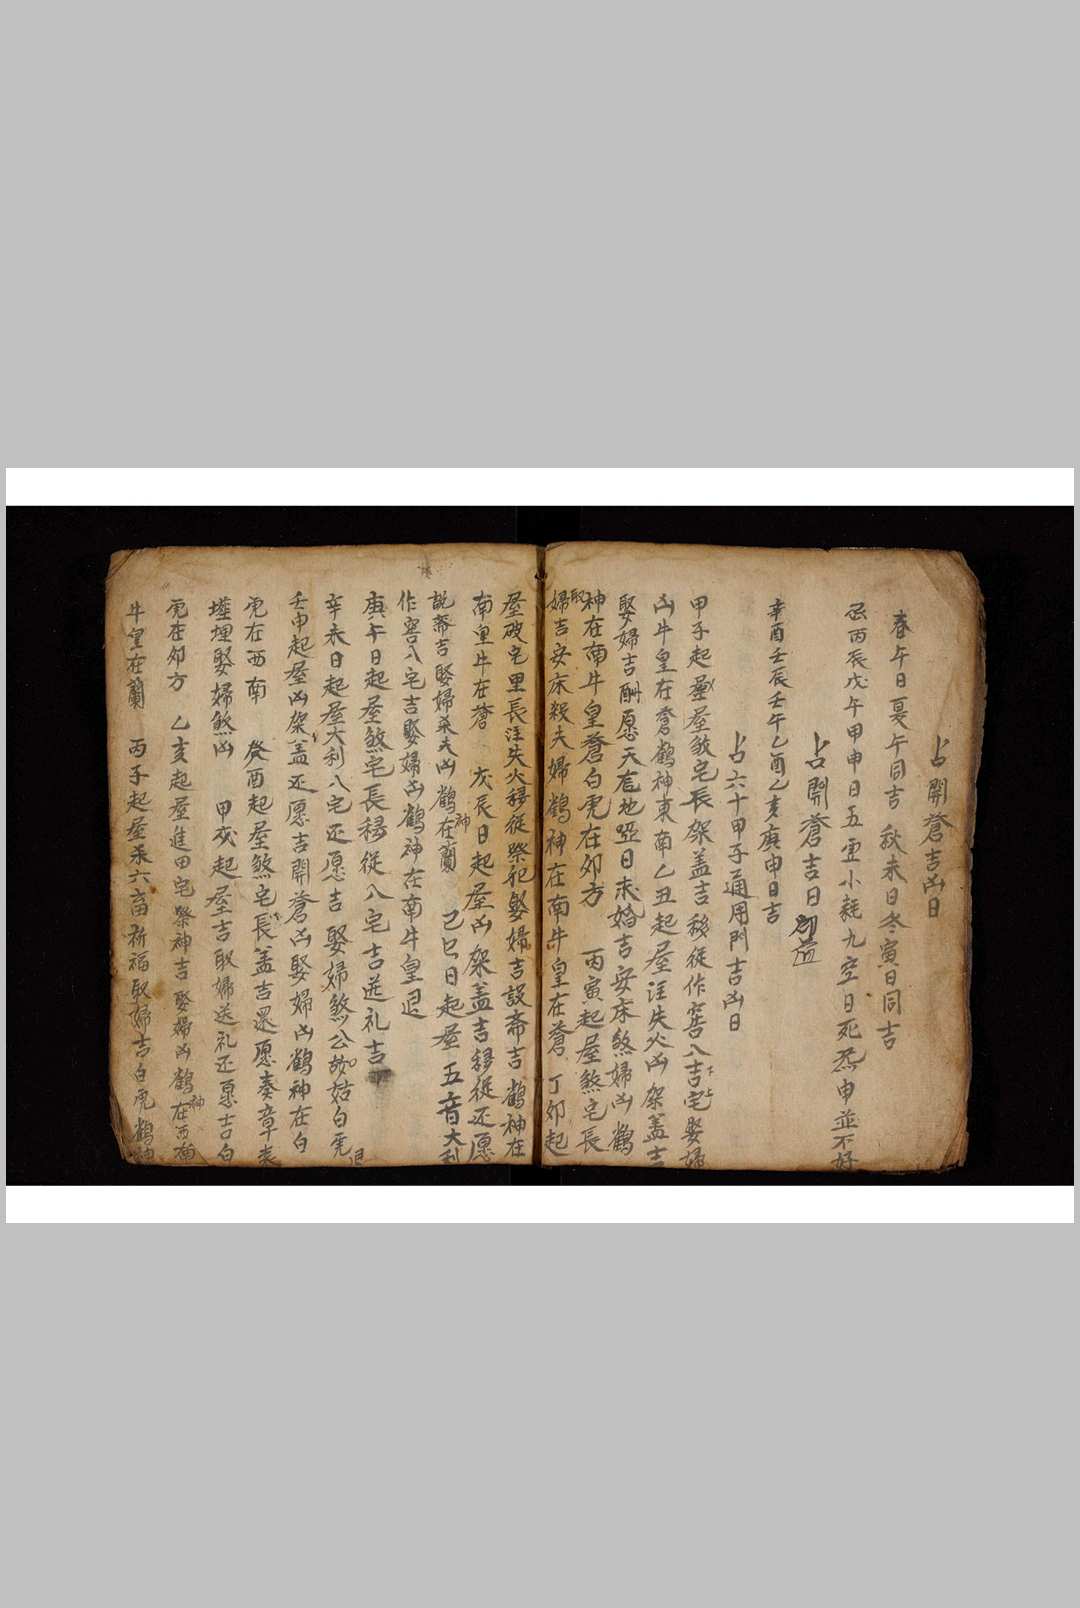 占開蒼吉凶日
春午日夏午同吉 秋未日冬寅日同吉
忌丙辰戊午甲申日五虛小耗九空日死炁申並不好
占開蒼吉日
辛酉壬辰壬午乙酉乙亥庚申日吉
占六十甲子通用門吉凶日
甲子起屋煞宅長架盖吉移徙作窖入宅吉娶婦
凶牛皇在蒼鶴神東南乙丑起屋注失火凶架盖吉
娶婦吉酬愿天聋地啞日求婚吉安床煞婦凶鶴
神在南牛皇蒼白虎在卯方 丙寅起屋煞宅長
娶婦吉安床殺夫婦鶴神在南牛皇在蒼 丁卯起
屋破宅里長注失火移徙祭祀娶婦吉設斋吉鶴神在
南皇牛在蒼 戊辰日起屋凶架盖吉移徙还愿
説斋吉娶婦杀夫凶鶴神在蘭 己巳日起屋五音大利
作窖八宅吉娶婦凶鶴神在南牛皇
庚午日起屋煞宅長移徙八宅吉送礼吉
辛未日起屋大利八宅还愿吉 娶婦煞公姑白虎
壬申起屋凶架盖还愿吉開蒼凶娶婦凶鶴神在白
虎在西南 癸酉起屋煞宅長盖吉还愿奏章表
塟埋娶婦煞凶 甲戌起屋吉取婦送礼还愿吉白
虎在卯方 乙亥起屋進田宅祭神吉娶婦凶鶴神在西南
牛皇在蘭 丙子起屋杀六畜祈福取婦吉白虎鶴神